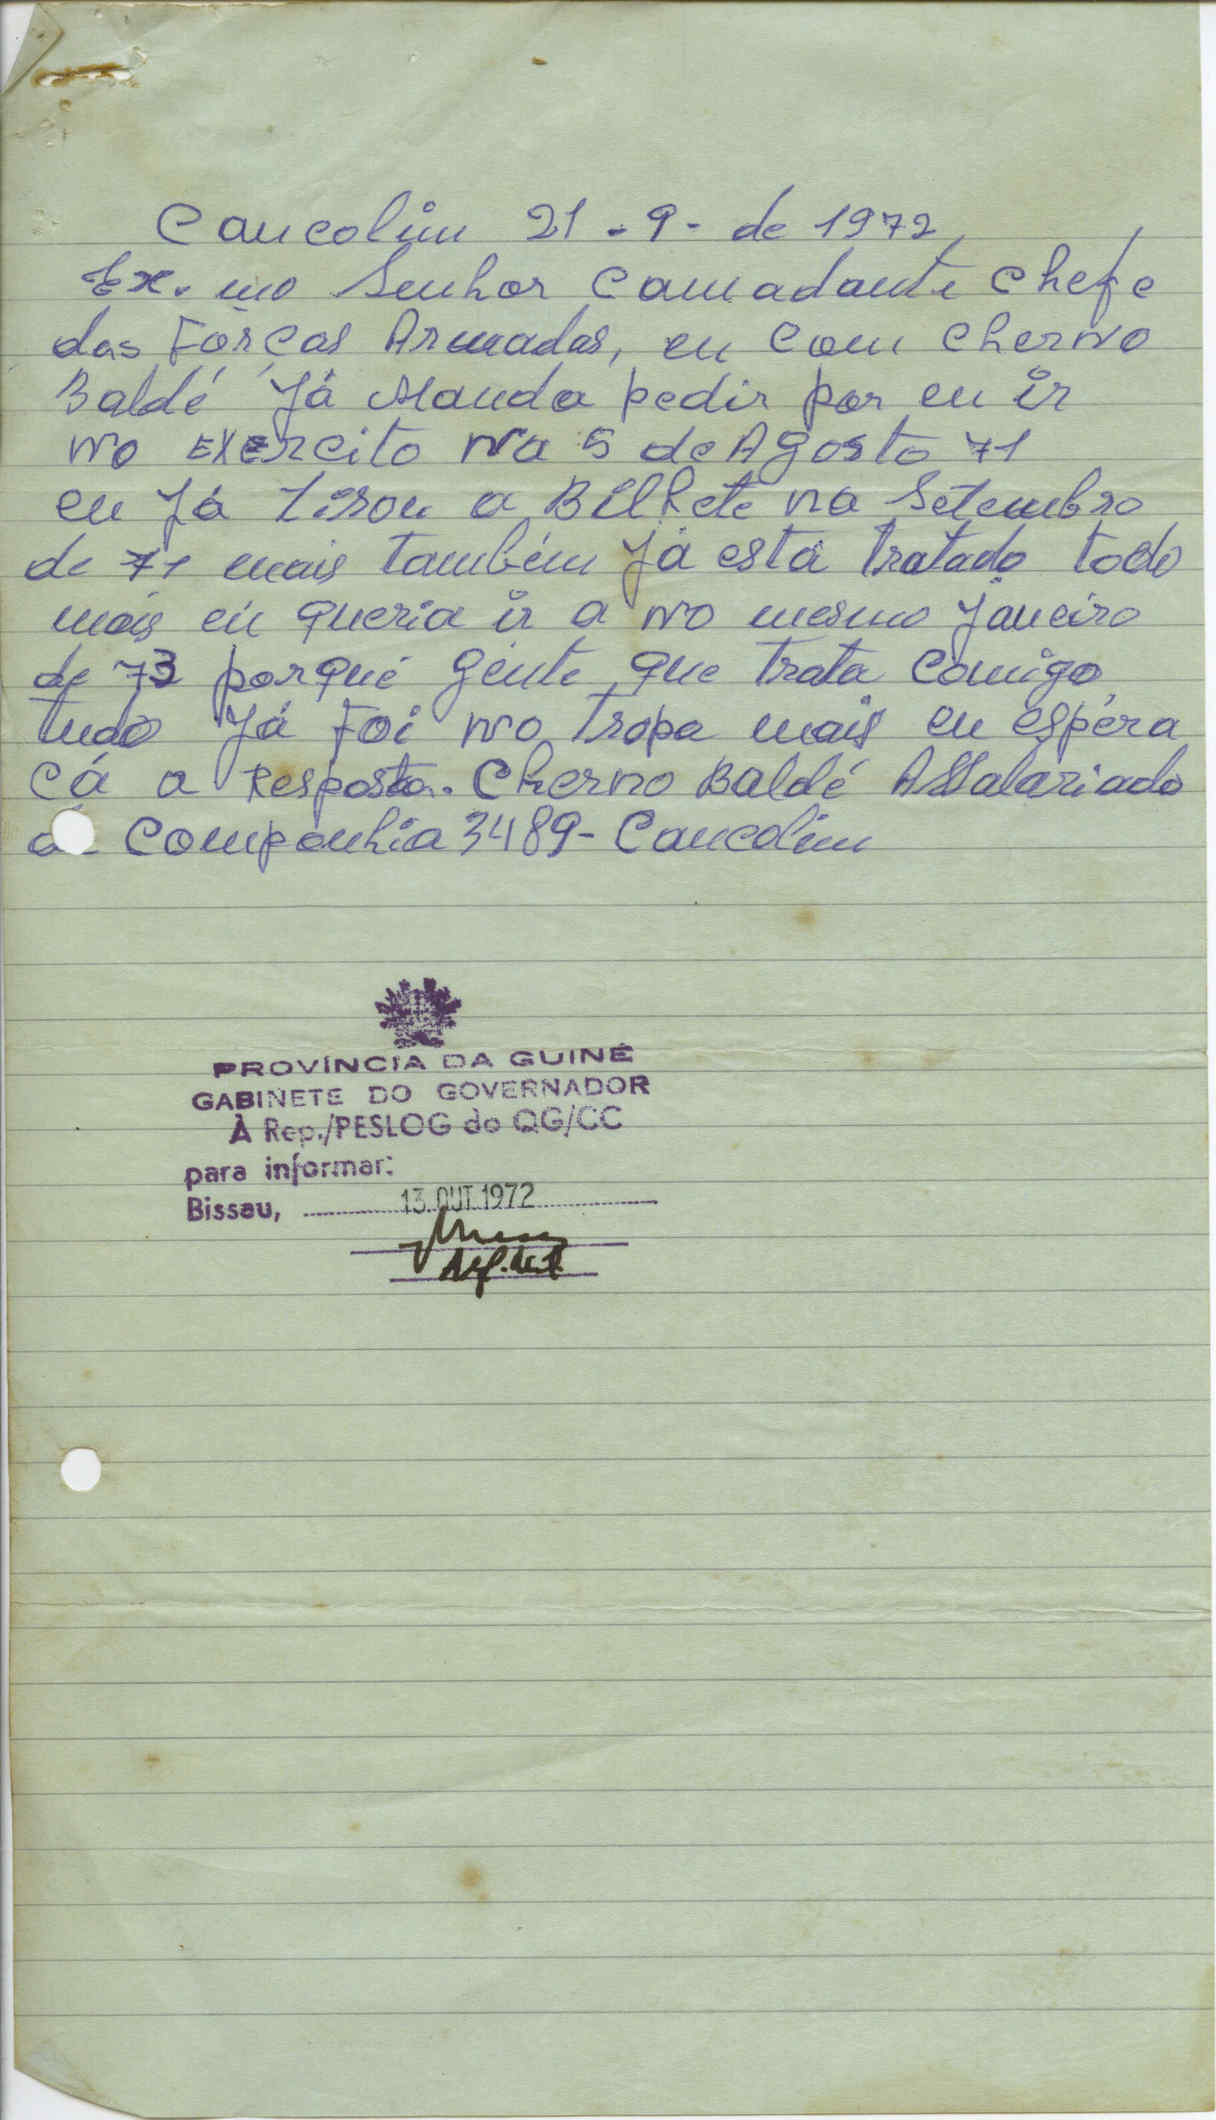 Cancolim 21-9- de 1972
Ex.mo Senhor Camadante Chefe
das Fôrças Armadas, eu com Cherno
Baldé Já Manda pedir por eu ir
no EXERCito na 5 de Agosto 71
eu Já Tirou a Bilhete na Setembro
de 71 mais também Já está tratado todo
mais eu queria ir a no mesmo Janeiro
de 73 porqué gente que trata Comigo
tudo Já Foi no tropa mais eu espéra
cá a Resposta. Cherno Baldé ASSalariado
Companhia 3489- Cancolim
PROVÍNCIA DA GUINÉ
GABINETE DO GOVERNADOR
À Rep./PESLOG do QG/CC
para informar:
Bissau, 13.OUT.1972